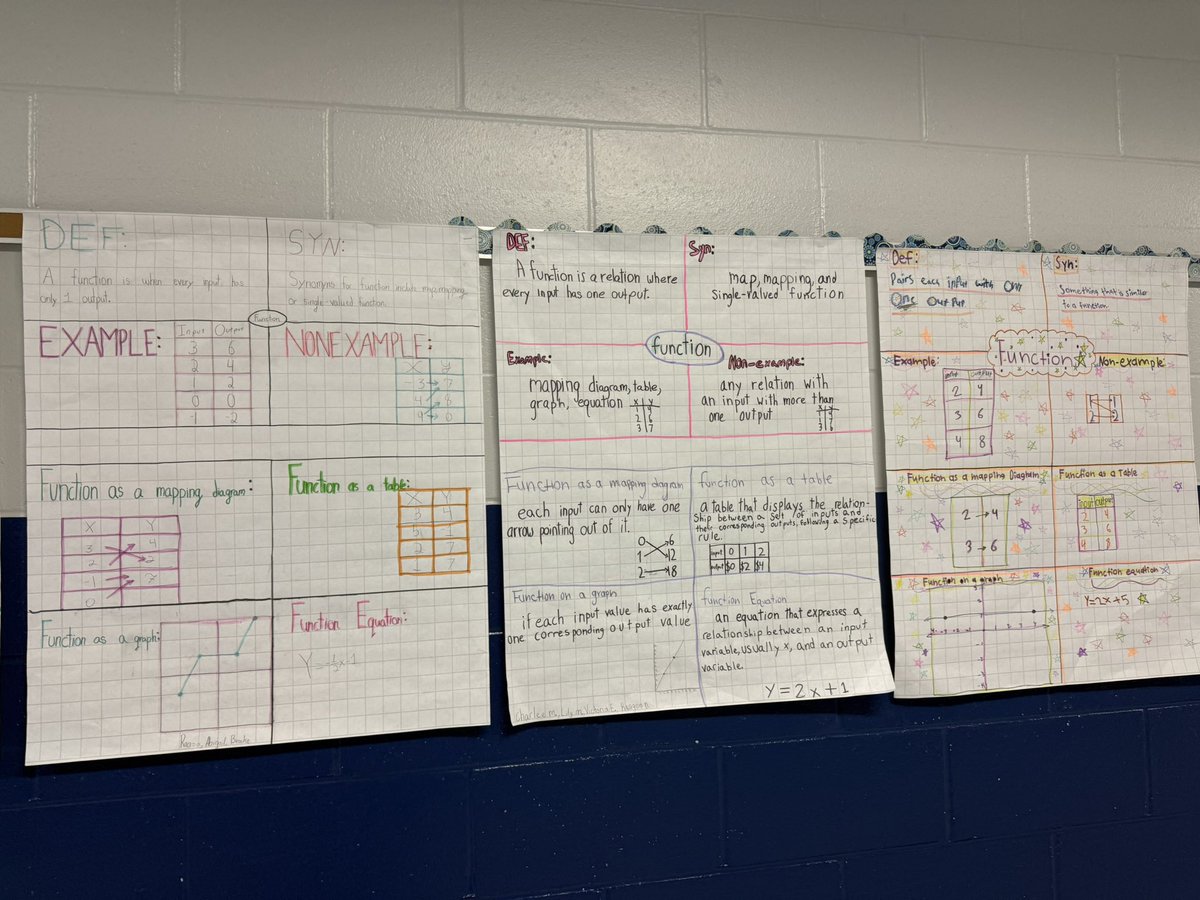 DEF:
A function is when every input has
only 1 output.
SYN:
Synonyms for function include map, mapping
or single-valued function.
Function
EXAMPLE:
Input Output
3 6
2 4
1 2
0 0
-1 -2
NONEXAMPLE:
X y
-3 7
4 8
9 0
Function as a mapping diagram:
X Y
3 4
2
-1 7
0
Function as a table:
X Y
3 4
2 7
1 7
Function as a graph:
Function Equation:
DEF:
A function is a relation where
every input has one output.
Syn:
map, mapping, and
single-valved function
function
Example:
mapping diagram, table,
graph, equation
x y
2 6
3 7
Non-example:
any relation with
an input with more than
one output
x y
Function as a mapping diagram
each input can only have one
arrow pointing out of it.
0 6
1 12
2 18
function as a table
a table that displays the relation-
ship between a set of inputs and
their corresponding outputs, following a specific
rule.
input 0 1 2
output $0 $2 $4
Function on a graph
if each input value has exactly
one corresponding output value
function Equation
an equation that expresses a
relationship between an input
variable, usually x, and an output
variable.
Y=2x+1
Def:
Pairs each input with One
One output
Syn:
Something that is similar
to a function.
Function
Example:
input output
2 4
3 6
4 8
Non-example:
1 1
2 2
Function as a mapping Diagram
2 → 4
3 → 6
Function as a Table
input output
2 4
3 6
4 8
Function on a graph
Function equation
Y=2x+5